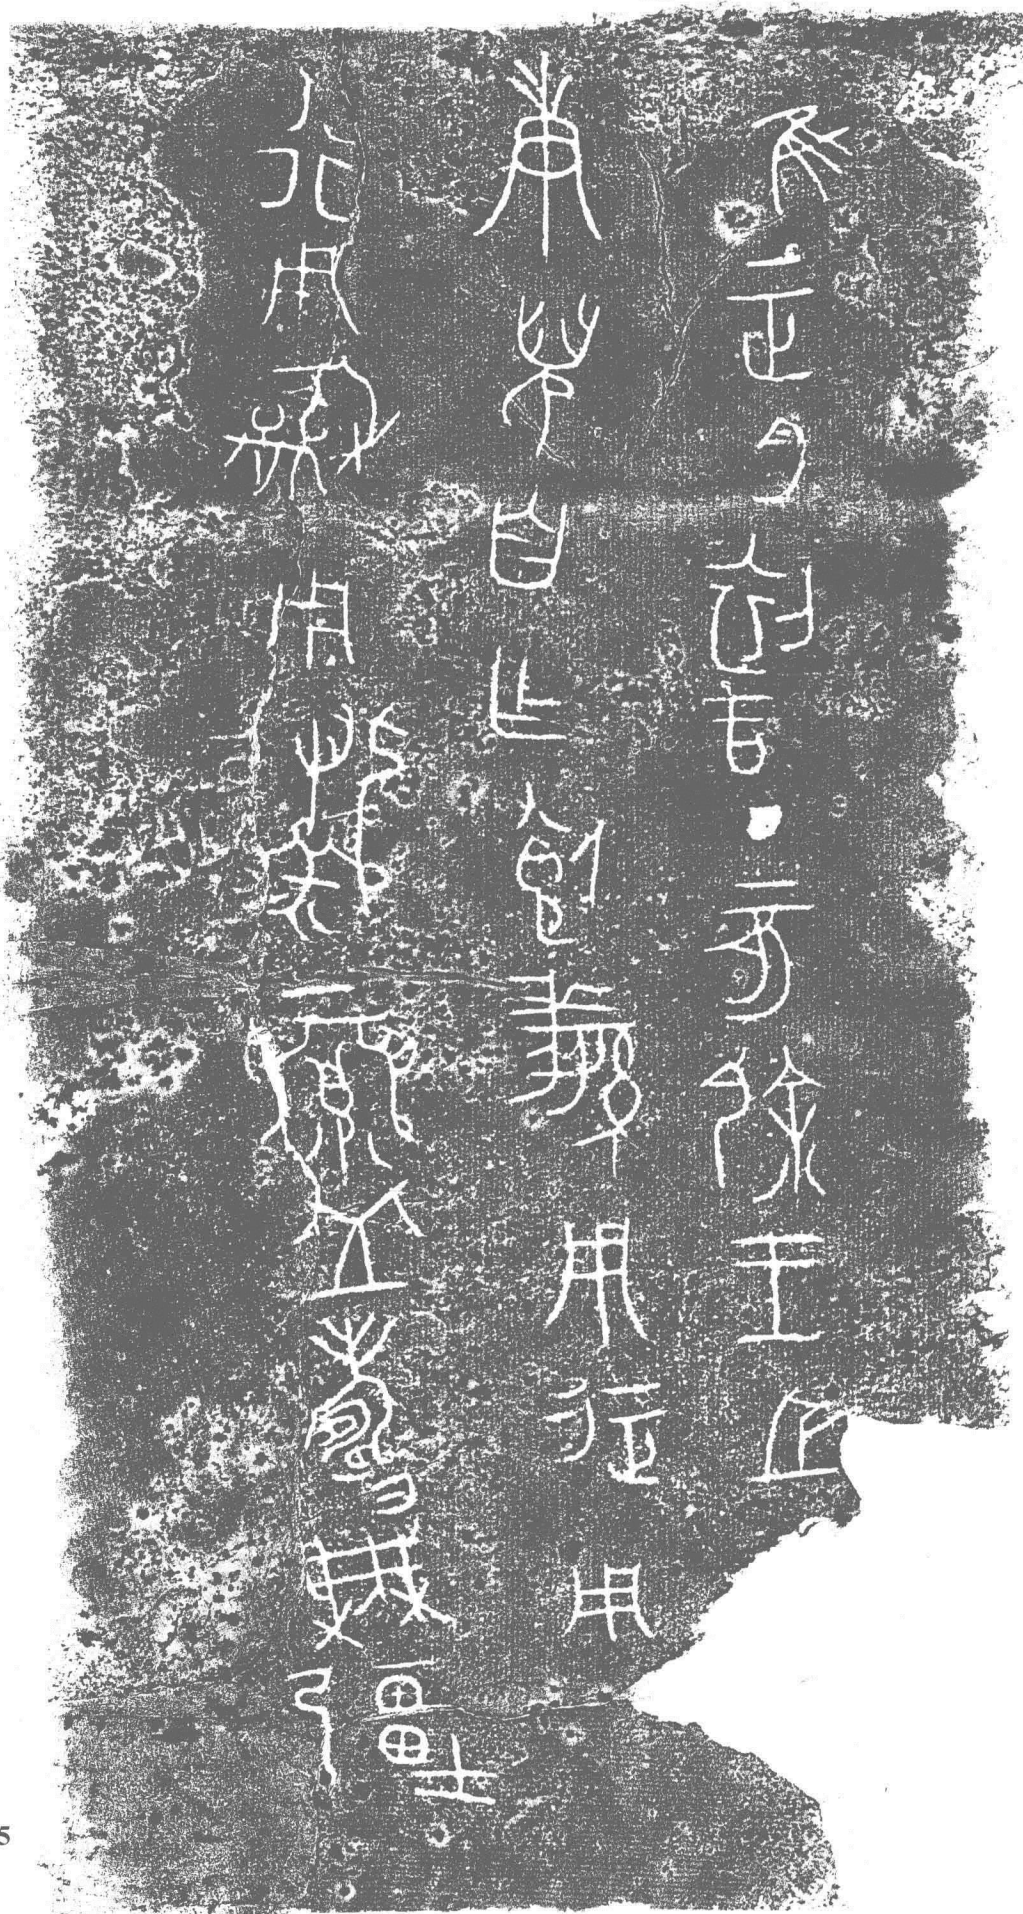 隹正月初吉丁亥䣄王之
庚兒自乍飤繁用征用
行用龢用䰞眉壽無疆